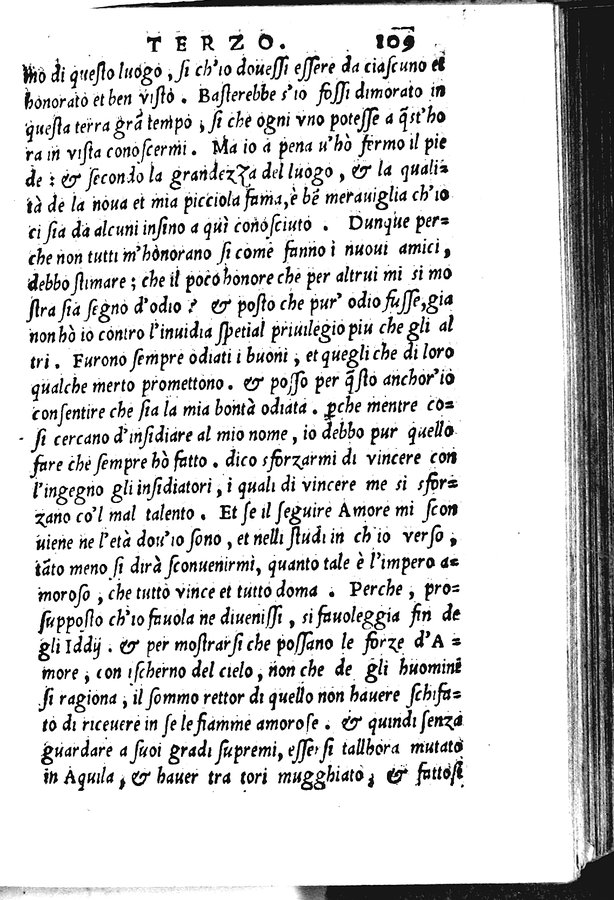 TERZO. 109
mo di questo luogo, si ch'io douessi essere da ciascuno et
honorato et ben visto. Basterebbe s'io fossi dimorato in
questa terra grã tempo, si che ogni vno potesse a q̃st'ho
ra in vista conoscermi. Ma io à pena u'hò fermo il pie
de: & secondo la grandezza del luogo, & la quali
tà de la noua et mia picciola fama, è bẽ merauiglia ch'io
ci sia da alcuni insino a quì conosciuto. Dunque per=
che non tutti m'hònorano si come fanno i nuoui amici,
debbo stimare; che il poco honore che per altrui mi si mo
stra sia segno d'odio? & posto che pur' odio fusse, gia
non hò io contro l'inuidia spetial priuilegio piu che gli al
tri. Furono sempre odiati i buoni, et quegli che di loro
qualche merto promettono. & posso per q̃sto anchor'io
consentire che sia la mia bontà odiata. ꝑche mentre co=
si cercano d'insidiare al mio nome, io debbo pur quello
fare che sempre hò fatto. dico sforzarmi di vincere con
l'ingegno gli insidiatori, i quali di vincere me si sfor=
zano co'l mal talento. Et se il seguire Amore mi scon
uiene ne l'età dou'io sono, et nelli studi in ch'io verso,
tãto meno si dirà sconuenirmi, quanto tale è l'impero a=
moroso, che tutto vince et tutto doma. Perche, pro=
supposto ch'io fauola ne diuenissi, si fauoleggia fin de
gli Iddij. & per mostrarsi che possano le forze d'A=
more, con ischerno del cielo, non che de gli huomini
si ragiona, il sommo rettor di quello non hauere schifa=
to di riceuere in se le fiamme amorose. & quindi senza
guardare a suoi gradi supremi, essersi tallhora mutato
in Aquila, & hauer tra tori mugghiato; & fattosi